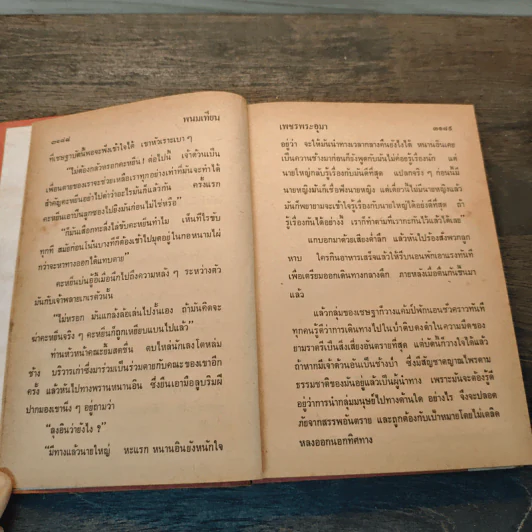 ๓๑๔๔ พนมเทียน
ที่เชษฐาบัดนี้พอจะฟังเข้าใจได้ เขาหัวเราะเบา ๆ
"ไม่ต้องกลัวหรอกคะหยิ่น! ต่อไปนี้ เจ้าตัวนั้นเป็น
เพื่อนตายของเราจะช่วยเหลือเราทุกอย่างเท่าที่มันจะทำได้
สำคัญคะหยิ่นอย่าไปด่าว่าอะไรมันก็แล้วกัน ครั้งแรก
คะหยิ่นเอาปืนลูกซองไปยิงมันก่อนไม่ใช่หรือ"
"ก็มันเสือกทะลึ่งไล่ขบคะหยิ่นทำไม เห็นที่ไรขบ
ทุกที สมัยก่อนโน้นบางทีก็ต้องเข้าไปมุดอยู่ในกอหนามไผ่
กว่าจะหาทางออกได้แทบตาย"
คะหยิ่นบ่นอู้อี้เมื่อนึกไปถึงความหลัง ๆ ระหว่างตัว
มันกับเจ้าพลายเนรตัวนั้น
"ไม่หรอก มันแกล้งล้อเล่นไปงั้นเอง ถ้ามันคิดจะ
ฆ่าคะหยิ่นจริง ๆ คะหยิ่นก็ถูกเหยียบแบนไปแล้ว"
ท่านหัวหน้าคณะยิ้มสดชื่น ตบไหล่นักเลงโตหล่ม
ช้าง บริวารเก่าซึ่งมาร่วมเป็นร่วมตายกับคณะของเขาอีก
ครั้ง แล้วหันไปทางพรานหนานอิน ซึ่งยืนเอามือลูบริมฝี
ปากมองเขานิ่ง ๆ อยู่ถามว่า
"ลุงอินว่ายังไง ?"
"มีทางแล้วนายใหญ่ ทะแรก หนานอินยังหนักใจ
เพชรพระอุมา ๓๑๔๕
อยู่ว่า จะให้มันนำทางเวลากลางคืนยังไงได้ หนานอินเคย
เป็นควานช้างมาก่อนก็ยังพูดกับมันไม่ค่อยรู้เรื่องนัก แต่
นายใหญ่กลับรู้เรื่องกับมันดีที่สุด แปลกจริง ๆ ก่อนนี้มี
นายหญิงมันก็เชื่อฟังนายหญิง แต่เดี๋ยวนี้ไม่มีนายหญิงแล้ว
มันก็พยายามจะเข้าใจรู้เรื่องกับนายใหญ่ได้อย่างดีที่สุด ถ้า
รู้เรื่องกันได้อย่างงี้ เราก็ทำตามที่เรากะกันไว้แล้วได้เลย"
แกบอกมาด้วยเสียงต่ำลึก แล้วหันไปร้องสั่งพวกลูก
หาบ ใครกินอาหารเสร็จแล้วให้รีบนอนพักเอาแรงทันที
เพื่อเตรียมออกเดินทางกลางดึก ภายหลังเมื่อตื่นกันขึ้นมา
แล้ว
แล้วกลุ่มของเชษฐาก็วางแค้มป์พักนอนชั่วคราวทันที
ทุกคนรู้ดีว่าการเดินทางไปในป่าดิบดงดำในความมืดของ
ยามราตรีเป็นสิ่งเสี่ยงอันตรายที่สุด แต่บัดนี้ก็วางใจได้แล้ว
ถ้าหากมีเจ้าด้วนอันเป็นช้างป่า ซึ่งมีสัญชาตญาณไพรตาม
ธรรมชาติของมันอยู่แล้วเป็นผู้นำทาง เพราะมันจะต้องรู้ดี
อยู่ว่าการนำกลุ่มมนุษย์ไปทางด้านใด อย่างไร จึงจะปลอด
ภัยจากสรรพอันตราย และถูกต้องกับเป้าหมายโดยไม่เตลิด
หลงออกนอกทิศทาง